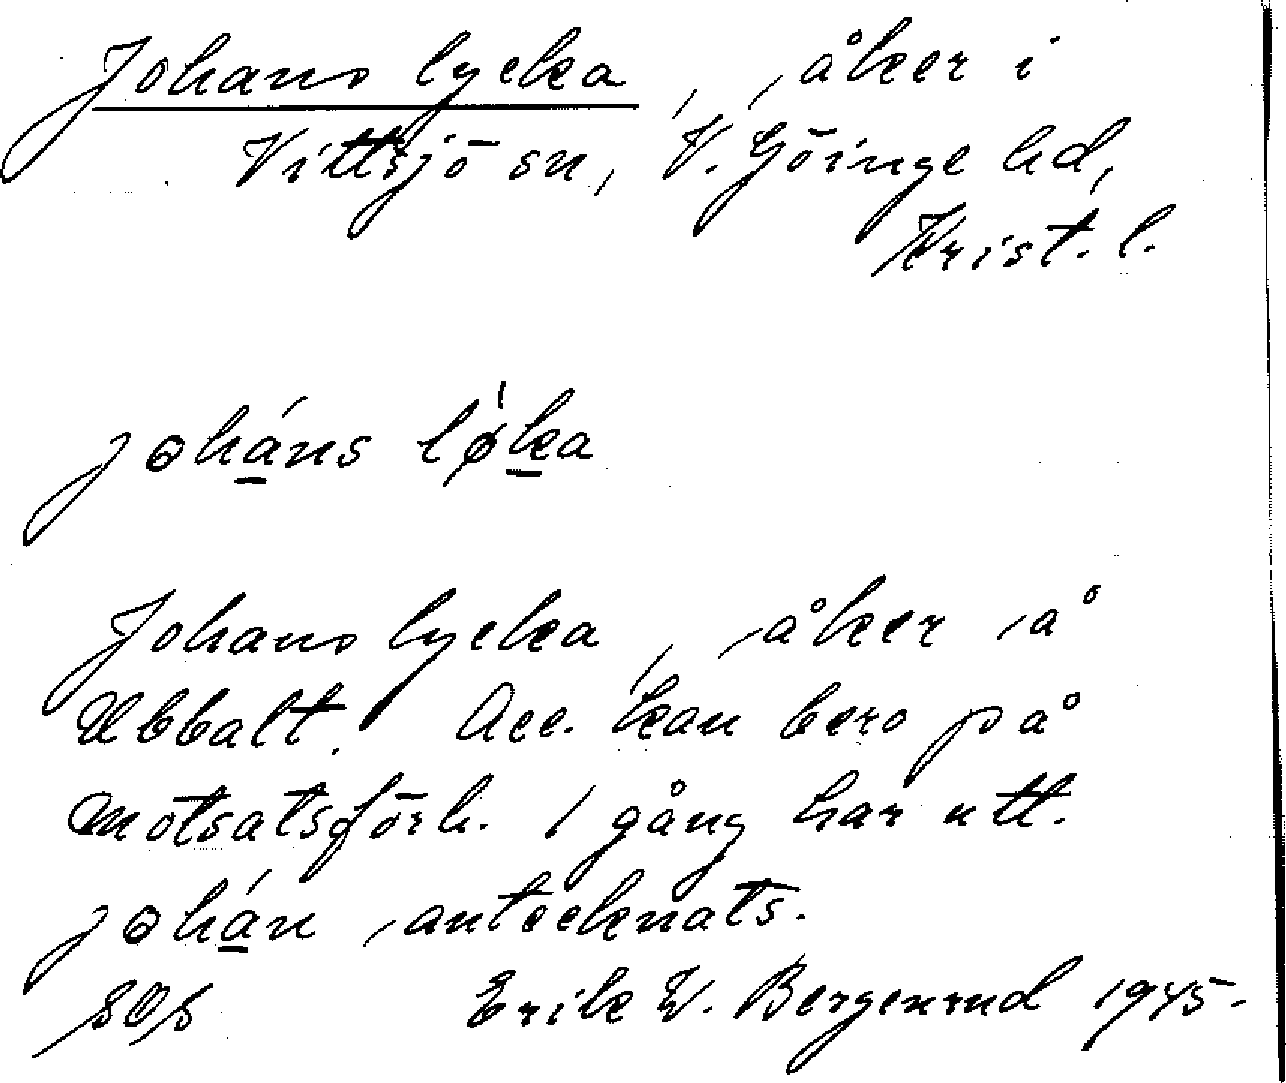 Johans lycka, åker i
Vittsjö sn, V. Göinge hd,
Krist. l.
joháns lø̍ka
Johans lycka, åker å
Ubbalt. Acc. kan bero på
motsatsförh. 1 gång har utt.
johán antecknats.
Erik W. Bergenrud 1945.